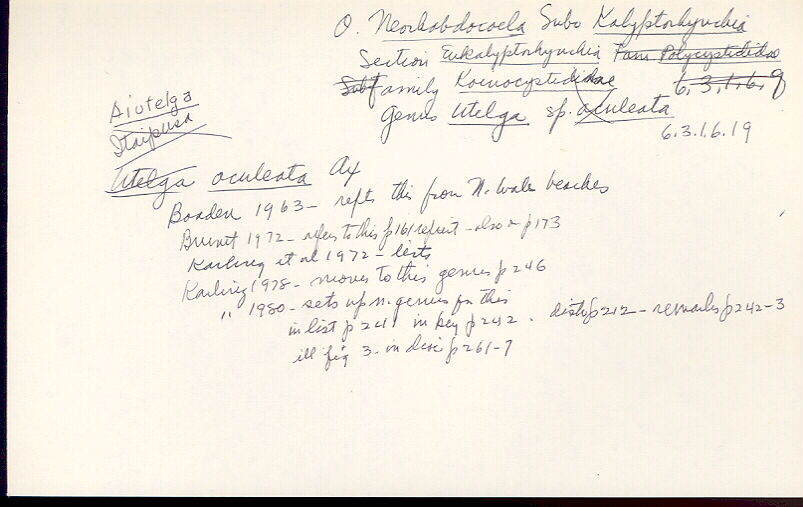 O. Neorhabdocoela Subo Kalyptorhynchia
Section Eukalyptorhynchia Fam Polycystididae
Subfamily Koinocystididae 6.3.1.6.9
Genus Utelga sp. aculeata
6.3.1.6.19
Aiutelga
Itaipusa
Utelga aculeata Ax
Boaden 1963 - repts this from N. Wales beaches
Brunet 1972 - refers to this p161 reprint - also on p173
Karling et al 1972 - lists
Karling 1978 - moves to this genus p246
" 1980 - sets up n. genus for this
in list p241 in key p242. dist p212 - remarks p242-3
ill fig 3. in disc p261-7